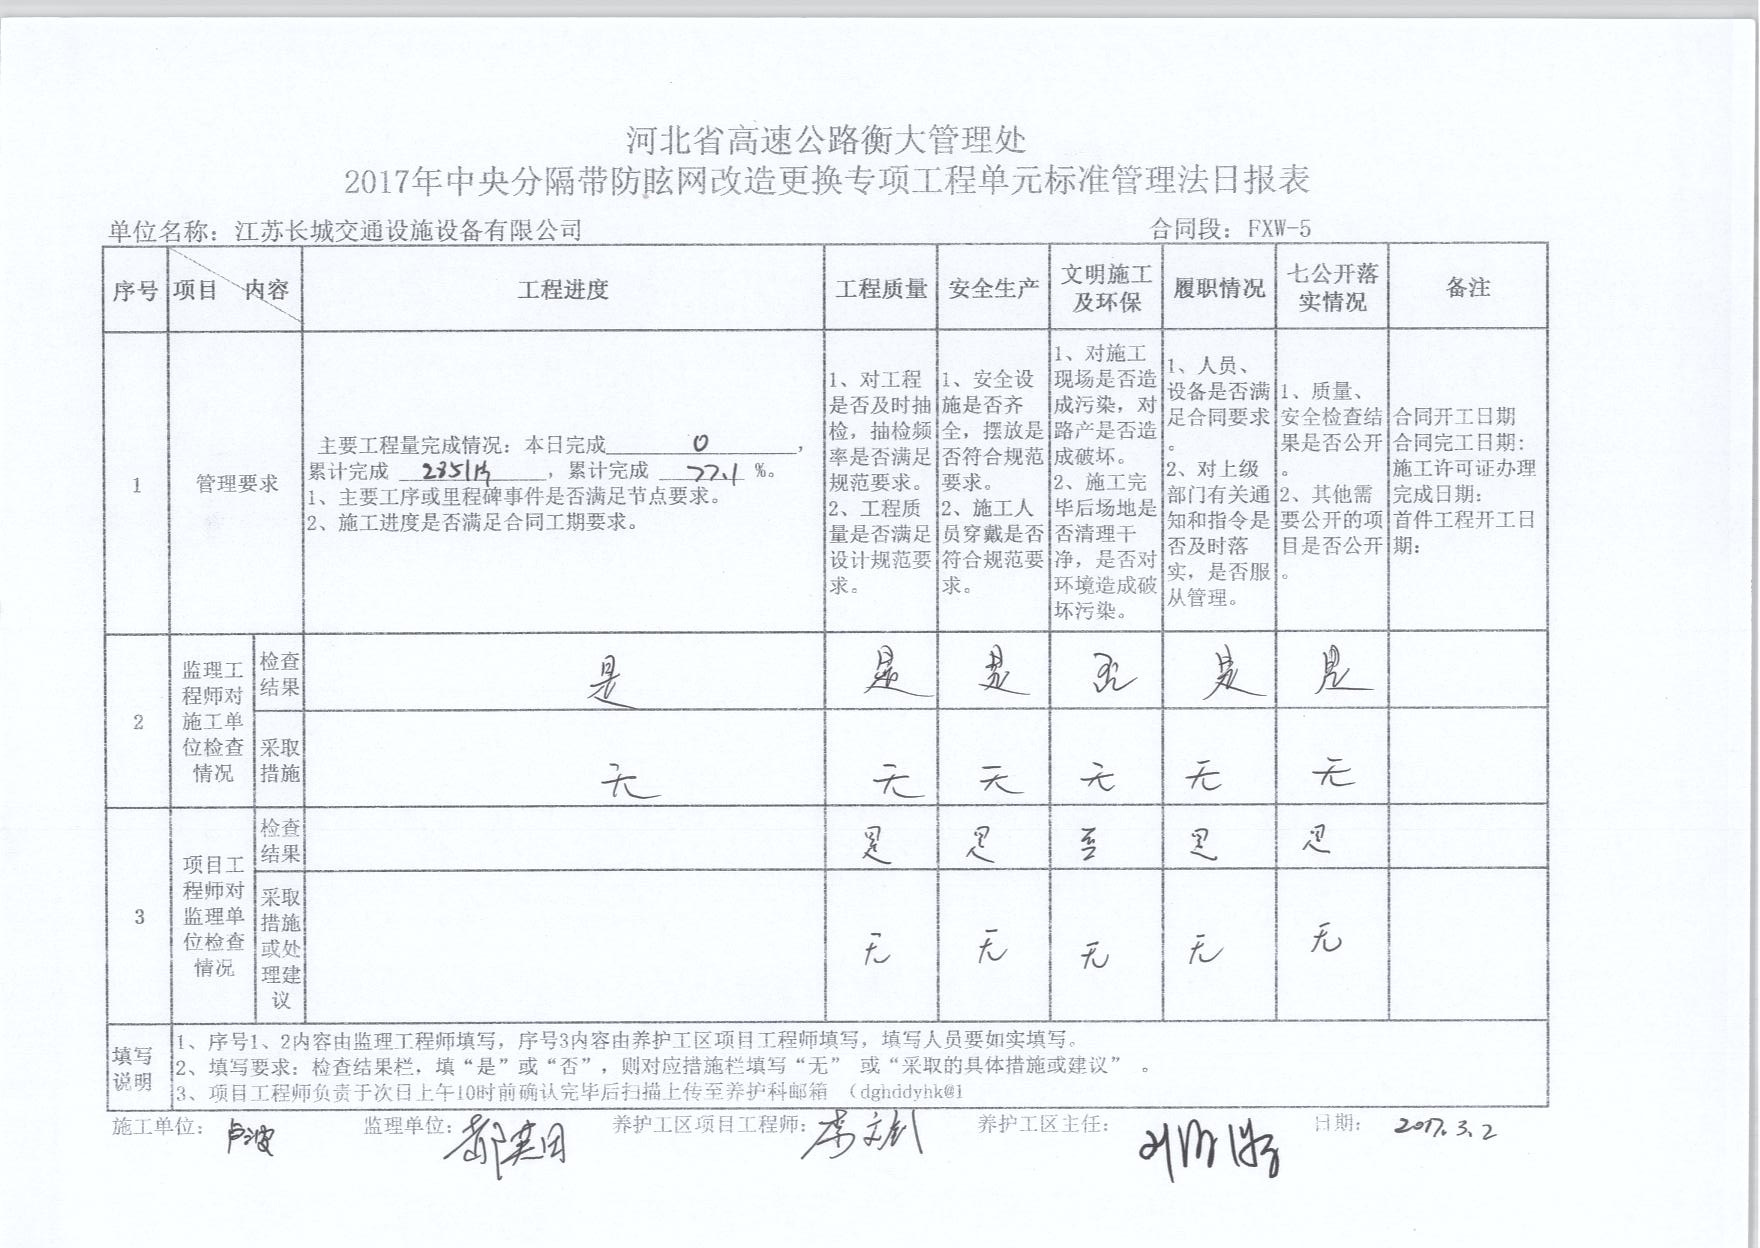 河北省高速公路衡大管理处
2017年中央分隔带防眩网改造更换专项工程单元标准管理法日报表
单位名称：江苏长城交通设施设备有限公司 合同段：FXW-5
序号 项目 内容 工程进度 工程质量 安全生产 文明施工及环保 履职情况 七公开落实情况 备注
1 管理要求
主要工程量完成情况：本日完成 0 ，
累计完成 2851片 ，累计完成 77.1 %。
1、主要工序或里程碑事件是否满足节点要求。
2、施工进度是否满足合同工期要求。
1、对工程
是否及时抽
检，抽检频
率是否满足
规范要求。
2、工程质
量是否满足
设计规范要
求。
1、安全设
施是否齐
全，摆放是
否符合规范
要求。
2、施工人
员穿戴是否
符合规范要
求。
1、对施工
现场是否造
成污染，对
路产是否造
成破坏。
2、施工完
毕后场地是
否清理干
净，是否对
环境造成破
坏污染。
1、人员、
设备是否满
足合同要求
。
2、对上级
部门有关通
知和指令是
否及时落
实，是否服
从管理。
1、质量、
安全检查结
果是否公开
。
2、其他需
要公开的项
目是否公开
。
合同开工日期
合同完工日期：
施工许可证办理
完成日期：
首件工程开工日
期：
2
监理工
程师对
施工单
位检查
情况
检查
结果
是 是 是 否 是 是
采取
措施
无 无 无 无 无 无
3
项目工
程师对
监理单
位检查
情况
检查
结果
是 是 否 是 是
采取
措施
或处
理建
议
无 无 无 无 无
填写
说明
1、序号1、2内容由监理工程师填写，序号3内容由养护工区项目工程师填写，填写人员要如实填写。
2、填写要求：检查结果栏，填“是”或“否”，则对应措施栏填写“无” 或“采取的具体措施或建议” 。
3、项目工程师负责于次日上午10时前确认完毕后扫描上传至养护科邮箱 （dghddyhk@1
施工单位： 卢波 监理单位： 养护工区项目工程师： 养护工区主任： 日期： 2017.3.2